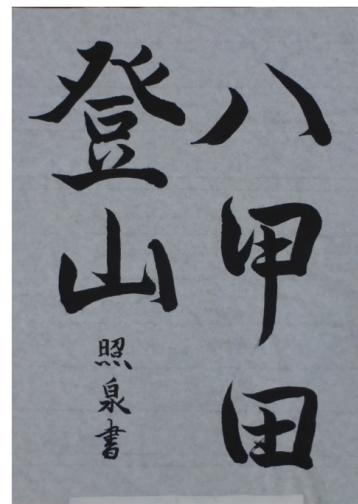 八甲田
登山
照泉書